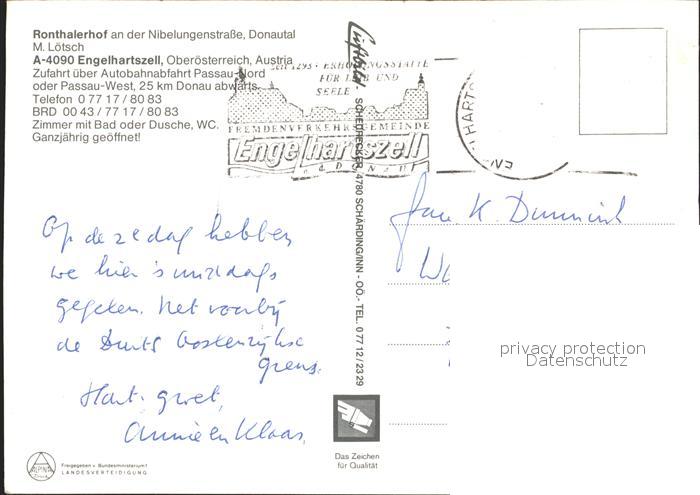 Ronthalerhof an der Nibelungenstraße, Donautal
M. Lötsch
A-4090 Engelhartszell, Oberösterreich, Austria
Zufahrt über Autobahnabfahrt Passau-Nord
oder Passau-West, 25 km Donau abwärts.
Telefon 0 77 17 / 80 83
BRD 00 43 / 77 17 / 80 83
Zimmer mit Bad oder Dusche, WC.
Ganzjährig geöffnet!
SEIT 1293 · ERHOLUNGSSTÄTTE
FÜR LEIB UND
SEELE
FREMDENVERKEHRSGEMEINDE
Engelhartszell
a.d. DONAU
SCHEURECKER, 4780 SCHÄRDING/INN - OÖ. - TEL. 0 77 12 / 23 29
Op deze dag hebben
we hier 's middags
gegeten. Net voorbij
de Duits Oostenrijkse
grens.
Hart. groet,
Annie en Klaas.
Fam. K.
privacy protection
Datenschutz
Das Zeichen
für Qualität
ALPINA
Freigegeben v. Bundesministerium f.
LANDESVERTEIDIGUNG